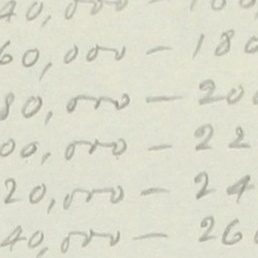 40,000 - 160
60,000 - 180
80,000 - 200
00,000 - 22
20,000 - 24
40,000 - 260